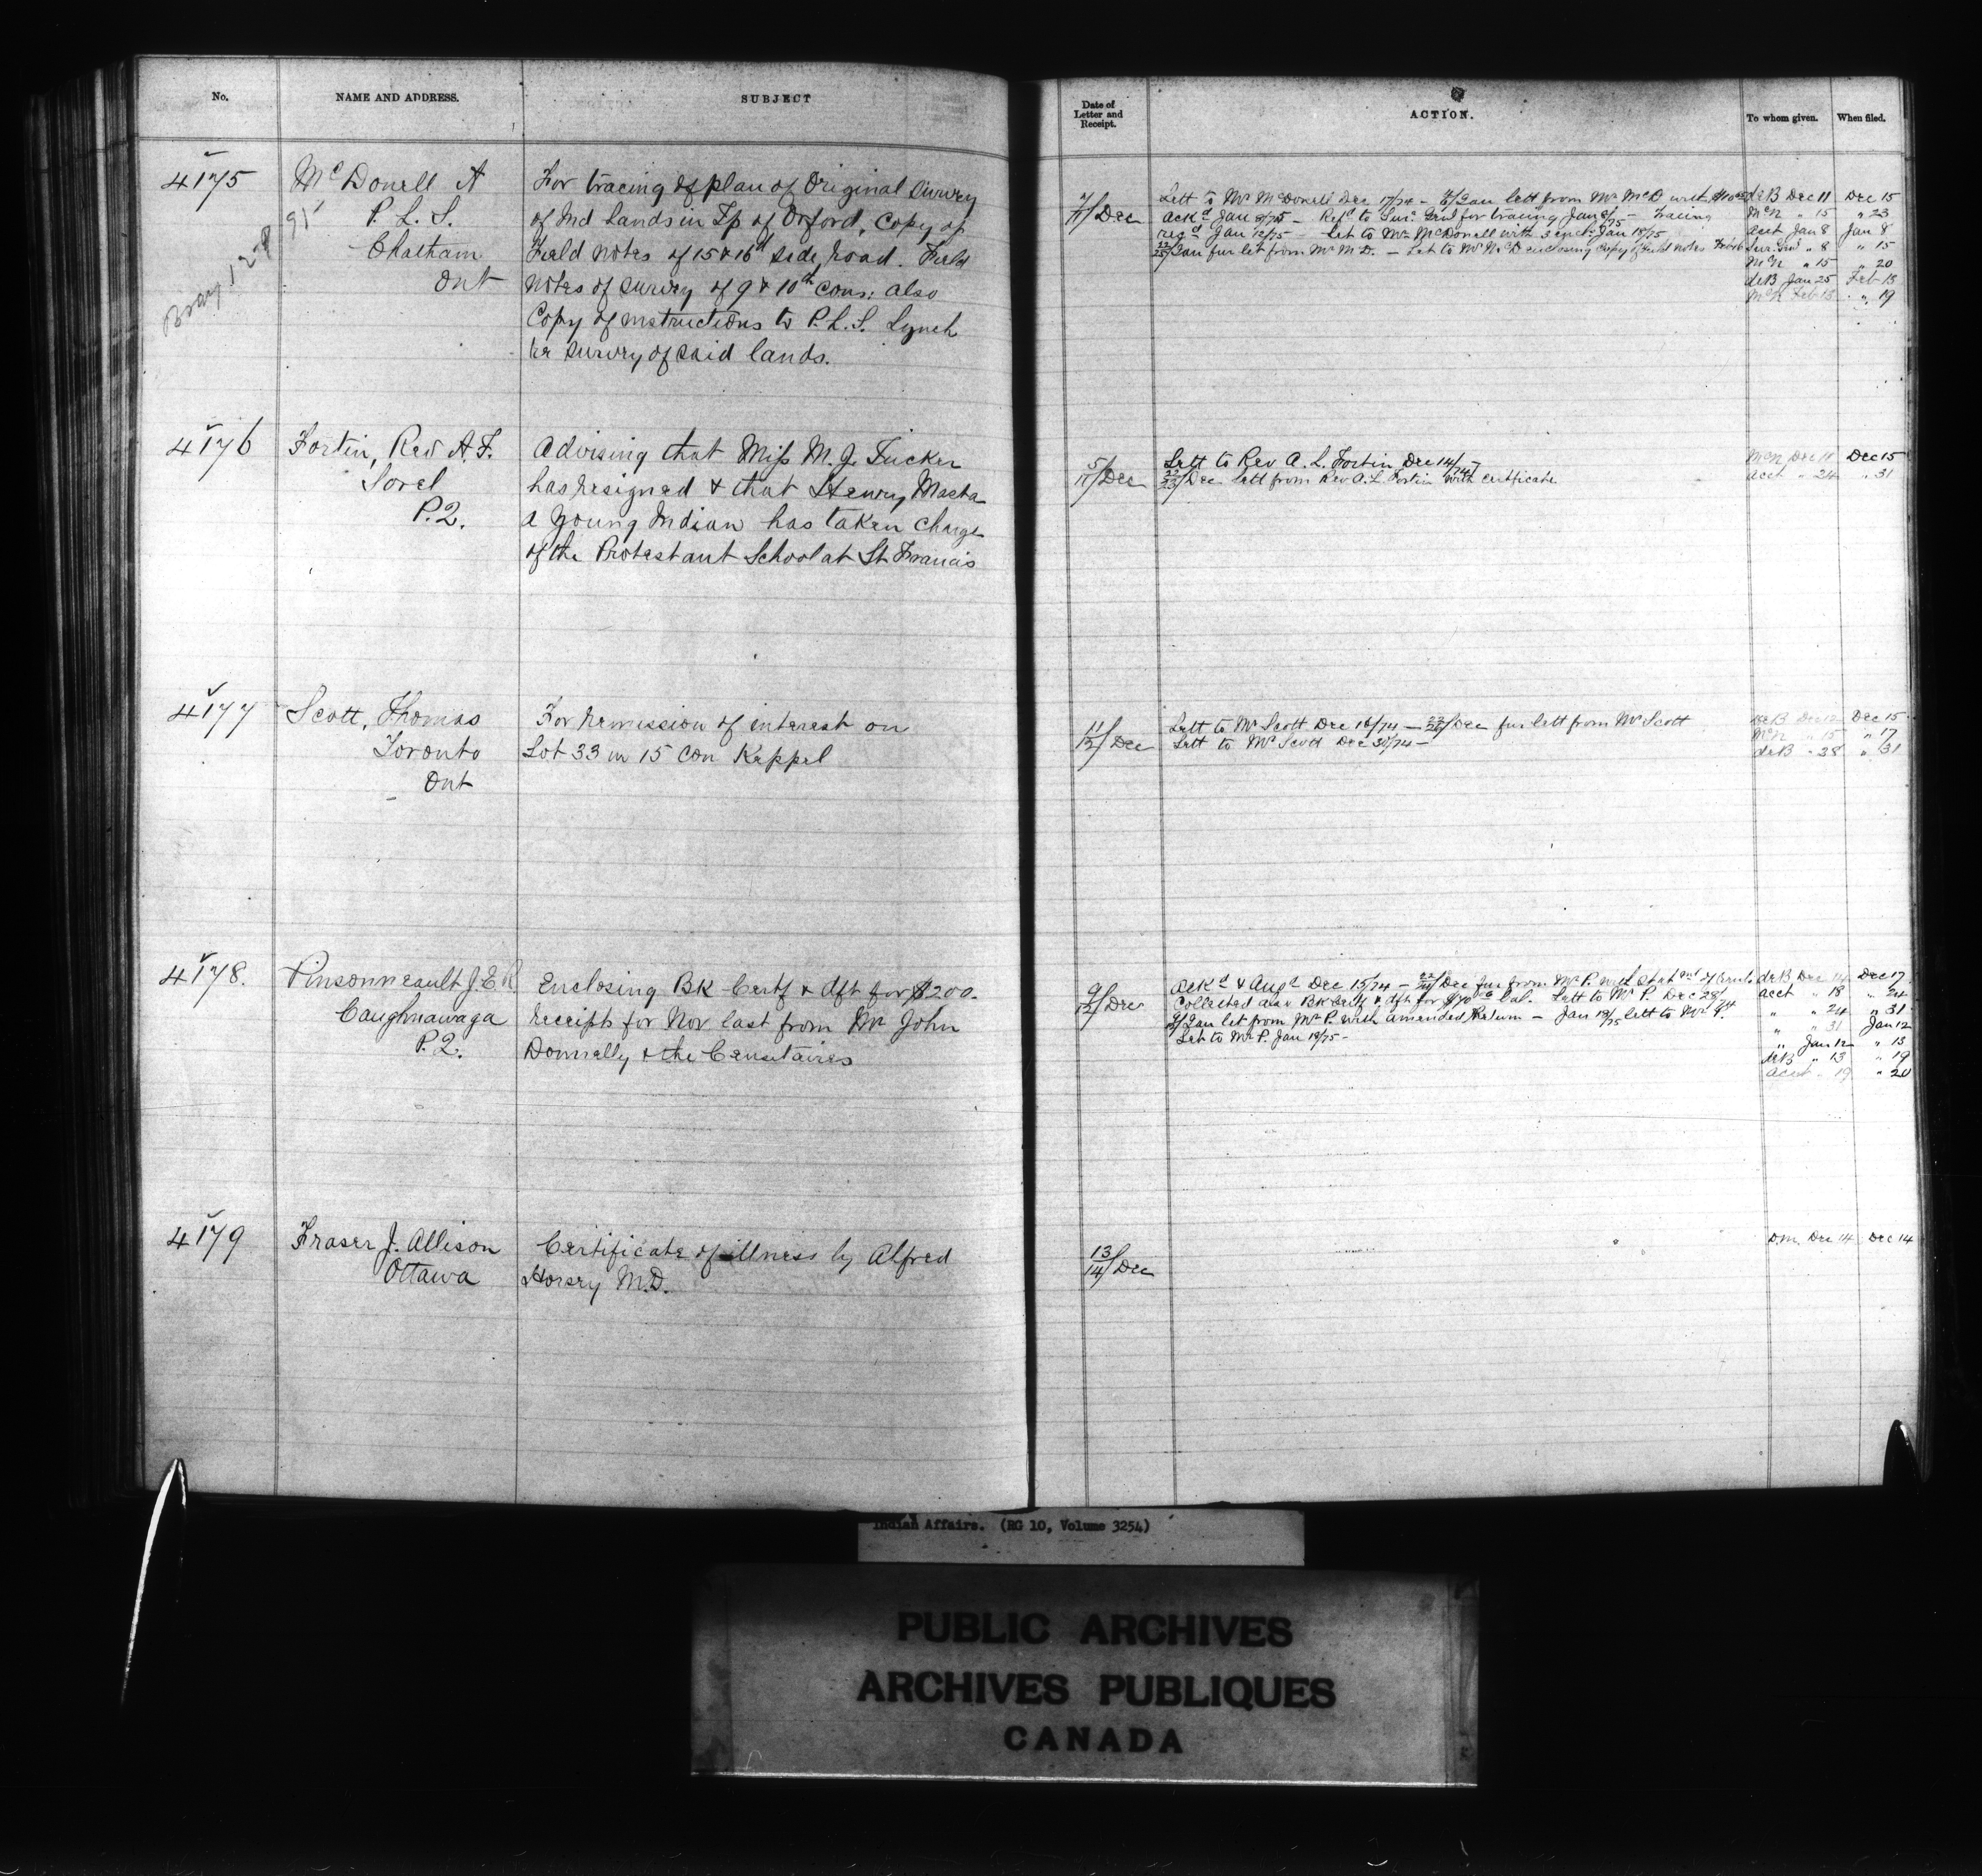 No.
NAME AND ADDRESS.
SUBJECT
4175
McDonell A
P. L. S.
Chatham
Ont
For tracing of plan of Original Survey
of Ind Lands in Tp of Orford, Copy of
Field notes of 15 & 16th side road. Field
notes of survey of 9 & 10th cons: also
Copy of instructions to P.L.S. Lynch
re survey of said lands.
4176
Fortin, Rev A. F.
Sorel
P.Q.
Advising that Miss M. J. Tucker
has resigned & that Henry Masta
a young Indian has taken charge
of the Protestant School at St Francis
4177
Scott, Thomas
Toronto
Ont
For remission of interest on
Lot 33 in 15 Con Keppel
4178.
Pinsonneault J. E. R
Caughnawaga
P.Q.
Enclosing Bk Certf & dft for $200.
receipts for Nov last from Mr John
Donnelly & the Censitaires
4179
Fraser J. Allison
Ottawa
Certificate of illness by Alfred
Horsey M.D.
Date of
Letter and
Receipt.
ACTION.
To whom given.
When filed.
7/11/Dec
Lett to Mr McDonell Dec 17/74 - Jan lett from Mr McD with
ackd Jan 8/75 - Refd to Sur. Genl for tracing Jan 8/75 - Tracing
recd Jan 12/75 - Let to Mr McDonell with 3 encl: Jan 18/75
22/25/Jan fur let from Mr M.D. - Let to Mr McD enclosing Copy of field notes
deB Dec 11 Dec 15
McN " 15 " 23
acct Jan 8 Jan 8
Sur. Genl " 8 " 15
McN " 15 " 20
deB Jan 25 Feb 13
McN Feb 13 " 19
5/11/Dec
Lett to Rev A. L. Fortin Dec 14/74 -
22/23/Dec Lett from Rev A. L. Fortin with certificate
McN Dec 11 Dec 15
acct " 24 " 31
11/12/Dec
Lett to Mr Scott Dec 16/74 - Dec fur lett from Mr Scott
Lett to Mr Scott Dec 30/74 -
deB Dec 12 Dec 15
McN " 15 " 17
deB " 28 " 31
9/12/Dec
Ackd & Augd Dec 15/74 - 22/24/Dec fur from Mr P. with
Collected also Bk Certf & dft for Bal. Lett to Mr P. Dec 28/74
Jan let from Mr P. with amended Return - Jan 13/75 lett to Mr P.
Let to Mr P. Jan 19/75 -
deB Dec 14 Dec 17
acct " 18 " 24
" " 24 " 31
" " 31 Jan 12
" Jan 12 " 13
deB " 13 " 19
acct " 19 " 20
13/14/Dec
D.M. Dec 14 Dec 14
Indian Affairs. (RG 10, Volume 3254)
PUBLIC ARCHIVES
ARCHIVES PUBLIQUES
CANADA